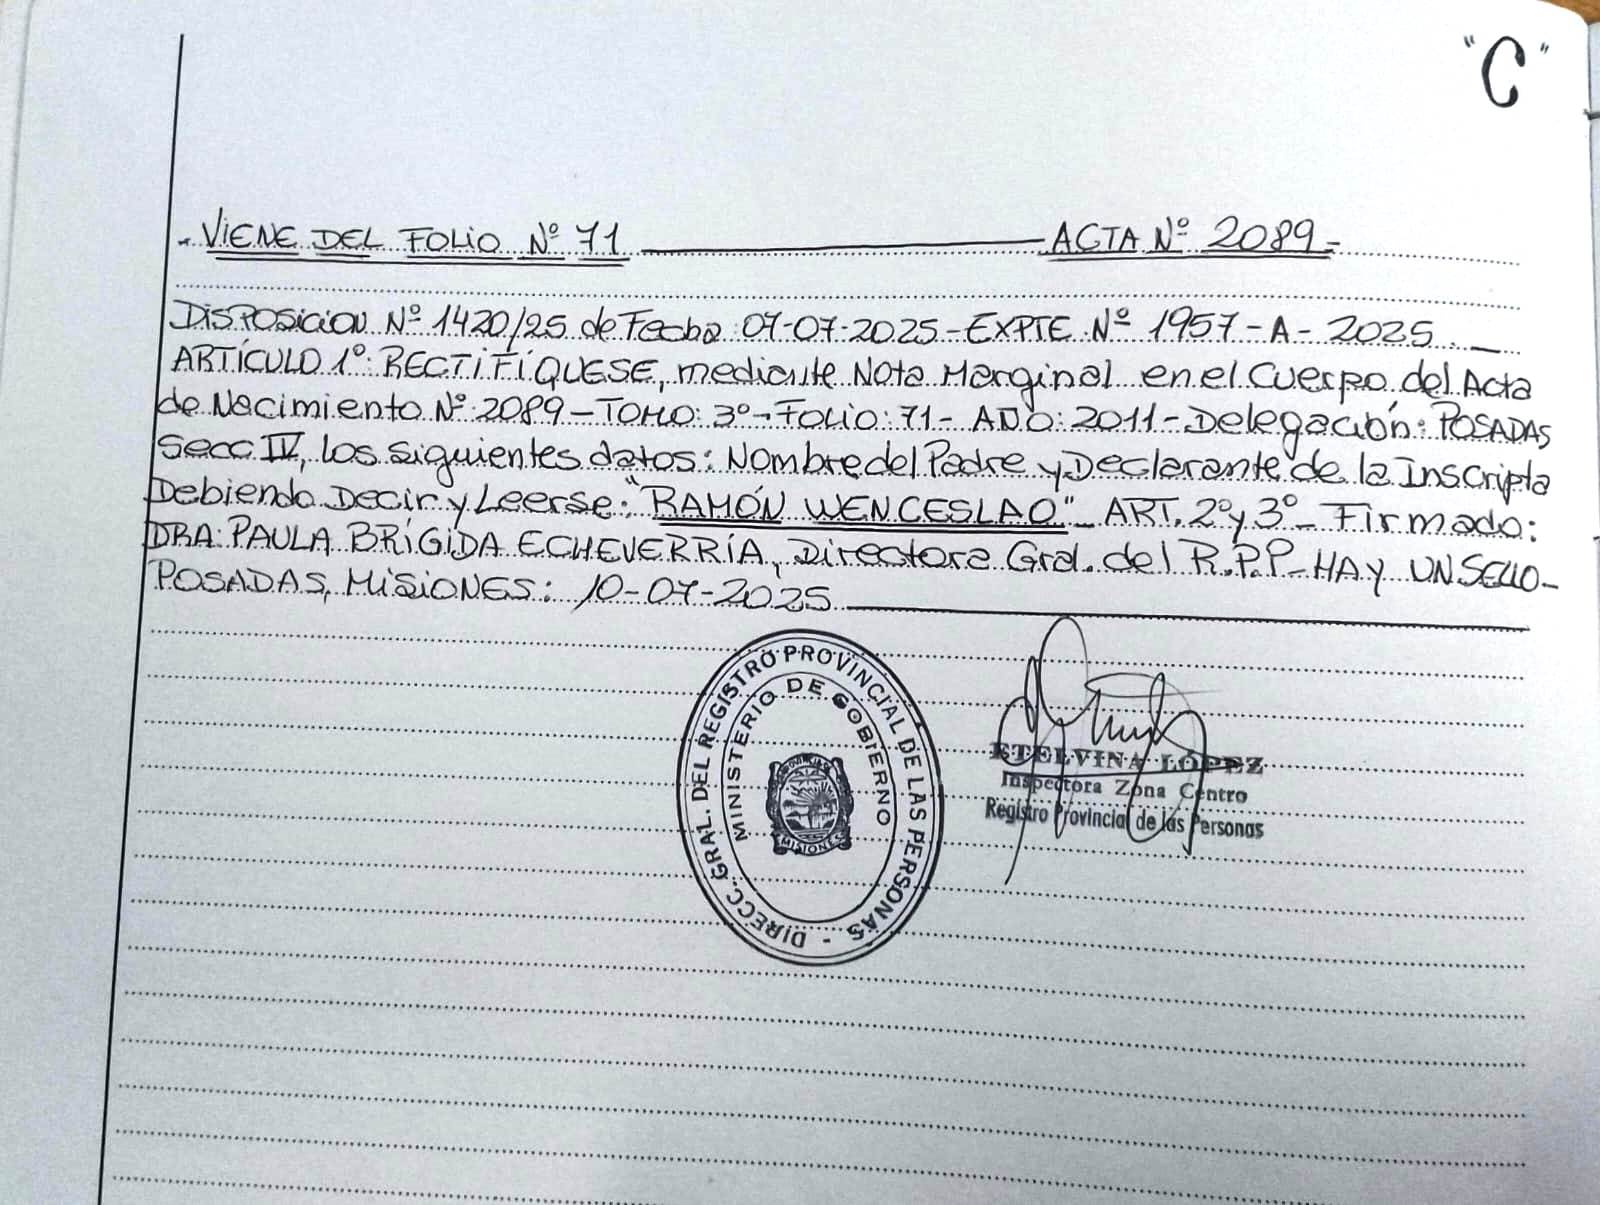 "C"
- VIENE DEL FOLIO Nº 71 ACTA Nº 2089-
DISPOSICION Nº 1420/25 de Fecha: 07-07-2025-EXPTE Nº 1957-A-2025._
ARTÍCULO 1º: RECTIFÍQUESE, mediante Nota Marginal en el Cuerpo del Acta
de Nacimiento Nº: 2089-TOMO: 3º-Folio: 71- AÑO: 2011-Delegación: POSADAS
Secc IV, los siguientes datos: Nombre del Padre y Declarante de la Inscripta
Debiendo Decir y Leerse: "RAMÓN WENCESLAO"- ART. 2º y 3º- Firmado:
DRA: PAULA BRÍGIDA ECHEVERRÍA, Directora Gral. del R.P.P-HAY UN SELLO-
POSADAS, MISIONES: 10-07-2025
DIRECC. GRAL. DEL REGISTRO PROVINCIAL DE LAS PERSONAS -
MINISTERIO DE GOBIERNO
MISIONES
ETELVINA LÓPEZ
Inspectora Zona Centro
Registro Provincial de las Personas